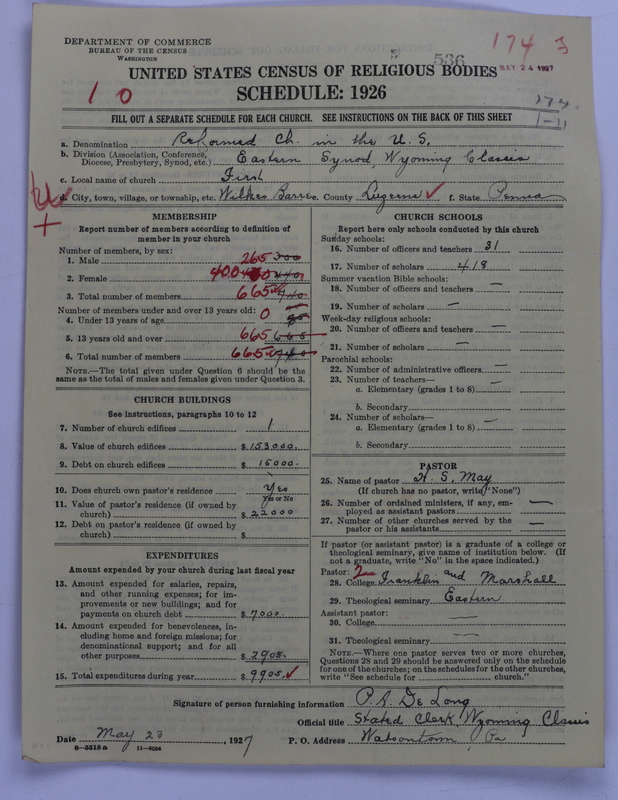 DEPARTMENT OF COMMERCE
BUREAU OF THE CENSUS
WASHINGTON
536
174
MAY 24 1927
UNITED STATES CENSUS OF RELIGIOUS BODIES
10
SCHEDULE: 1926
174
FILL OUT A SEPARATE SCHEDULE FOR EACH CHURCH. SEE INSTRUCTIONS ON THE BACK OF THIS SHEET
1-11
a. Denomination Reformed Ch. in the U. S.
b. Division (Association, Conference, Diocese, Presbytery, Synod, etc.) Eastern Synod, Wyoming Classis
c. Local name of church First
d. City, town, village, or township, etc. Wilkes Barre e. County Luzerne ✓ f. State Penna
MEMBERSHIP
Report number of members according to definition of
member in your church
Number of members, by sex:
1. Male 265 300
2. Female 400 440
3. Total number of members 665 740
Number of members under and over 13 years old:
4. Under 13 years of age 0
5. 13 years old and over 665 665
6. Total number of members 665 740
NOTE.—The total given under Question 6 should be the
same as the total of males and females given under Question 3.
CHURCH BUILDINGS
See instructions, paragraphs 10 to 12
7. Number of church edifices 1
8. Value of church edifices $ 153000.
9. Debt on church edifices $ 15000.
10. Does church own pastor's residence Yes
Yes or No
11. Value of pastor's residence (if owned by
church) $ 22000
12. Debt on pastor's residence (if owned by
church) $
EXPENDITURES
Amount expended by your church during last fiscal year
13. Amount expended for salaries, repairs,
and other running expenses; for im-
provements or new buildings; and for
payments on church debt $ 7000.
14. Amount expended for benevolences, in-
cluding home and foreign missions; for
denominational support; and for all
other purposes $ 2905.
15. Total expenditures during year $ 9905. ✓
CHURCH SCHOOLS
Report here only schools conducted by this church
Sunday schools:
16. Number of officers and teachers 31
17. Number of scholars 418
Summer vacation Bible schools:
18. Number of officers and teachers —
19. Number of scholars —
Week-day religious schools:
20. Number of officers and teachers —
21. Number of scholars —
Parochial schools:
22. Number of administrative officers —
23. Number of teachers—
a. Elementary (grades 1 to 8) —
b. Secondary
24. Number of scholars—
a. Elementary (grades 1 to 8) —
b. Secondary
PASTOR
25. Name of pastor H. S. May
(If church has no pastor, write "None")
26. Number of ordained ministers, if any, em-
ployed as assistant pastors —
27. Number of other churches served by the
pastor or his assistants —
If pastor (or assistant pastor) is a graduate of a college or
theological seminary, give name of institution below. (If
not a graduate, write "No" in the space indicated.)
Pastor: 2
28. College Franklin and Marshall
29. Theological seminary Eastern
Assistant pastor:
30. College —
31. Theological seminary —
NOTE.—Where one pastor serves two or more churches,
Questions 28 and 29 should be answered only on the schedule
for one of the churches; on the schedules for the other churches,
write "See schedule for church."
Signature of person furnishing information P. A. De Long
Official title Stated Clerk, Wyoming Classis
Date May 23, 1927 P. O. Address Watsontown, Pa
8—5518 a 11—9054